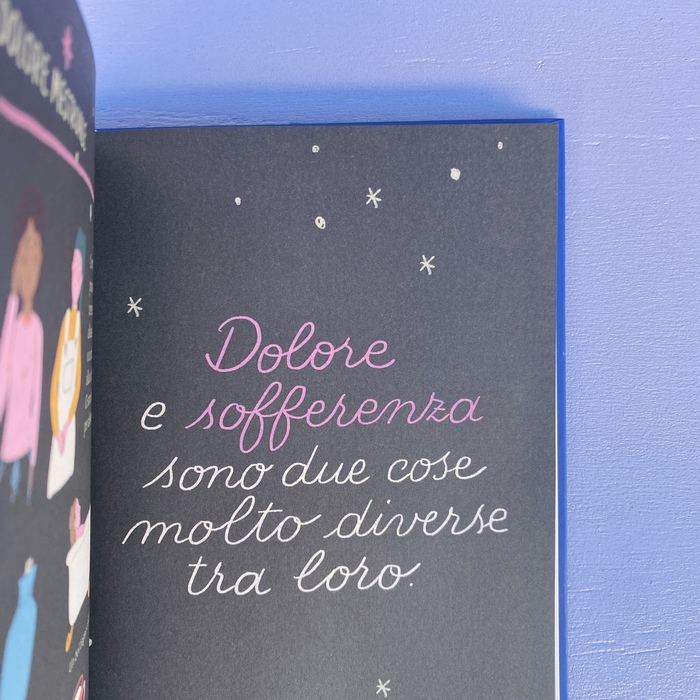 DOLORE MESTRUALE
Dolore
e sofferenza
sono due cose
molto diverse
tra loro.